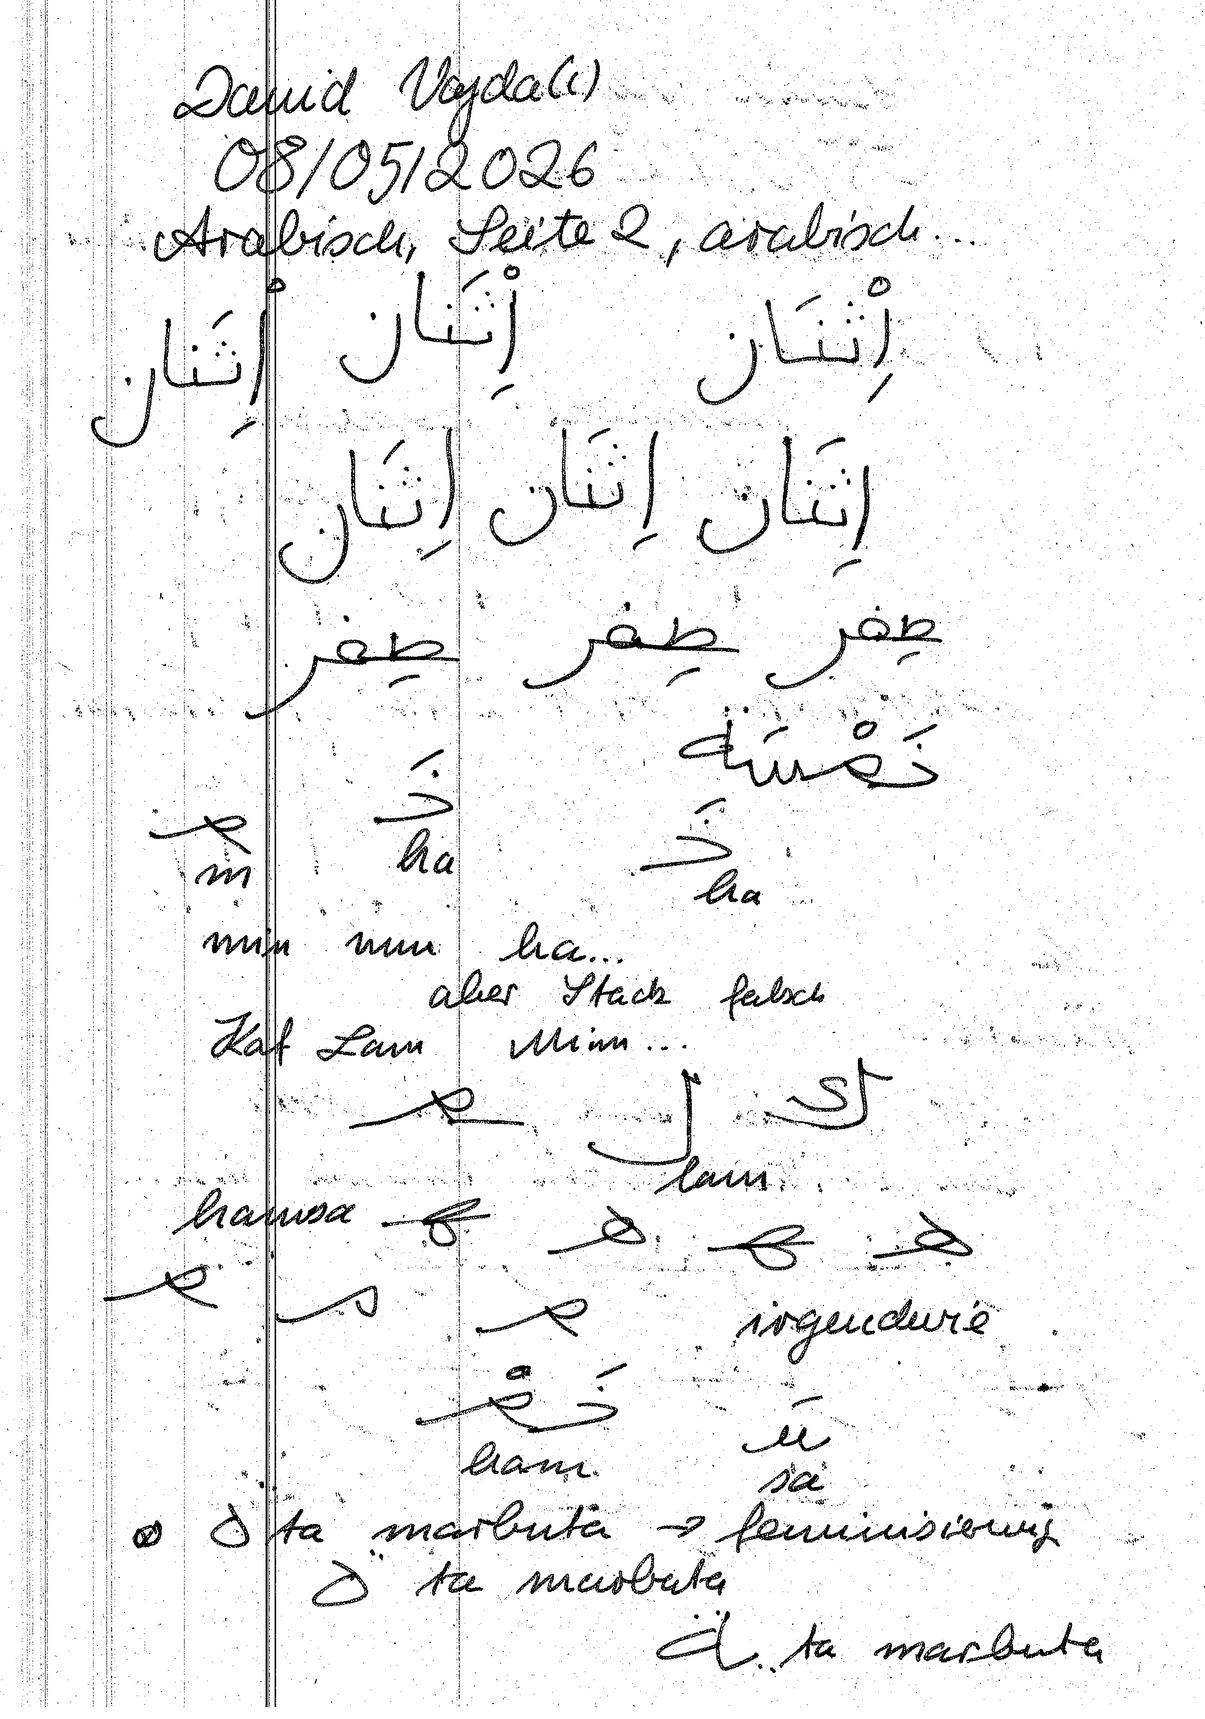 David Vajda(c)
08/05/2026
Arabisch, Seite 2, arabisch...
اِثْنَان اِثْنَان اِثْنَان
اِثنَان اِثنَان اِثنَان
صِفر صِفر صِفر
خَمْسَة
خَ خَ
مـ
m ha ha
min mun ha...
aber Stack falsch
Kaf Lam Mim...
ك ل م
lam
hamsa ه ه ه ه
م م م irgendwie
خَمْ سَ
ham sa
ة ta marbuta → feminisierung
ة ta marbuta
ـة ta marbuta